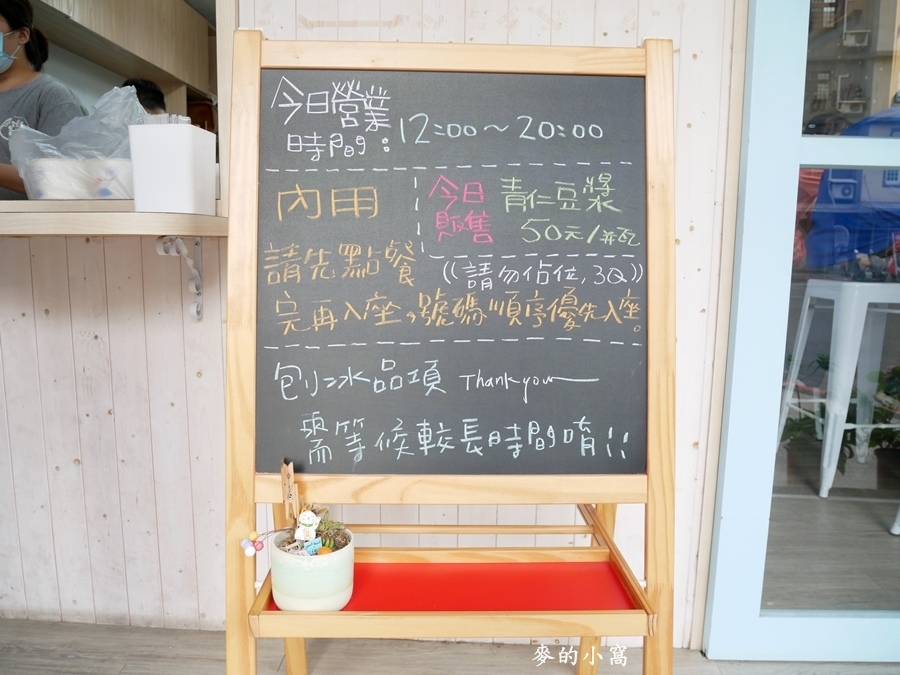 今日營業
時間：12:00～20:00
內用
今日
販售
青仁豆漿
50元/瓶
請先點餐
((請勿佔位,3Q))
完再入座，號碼順序優先入座。
刨冰品項 Thank you
需等候較長時間唷!!
麥的小窩